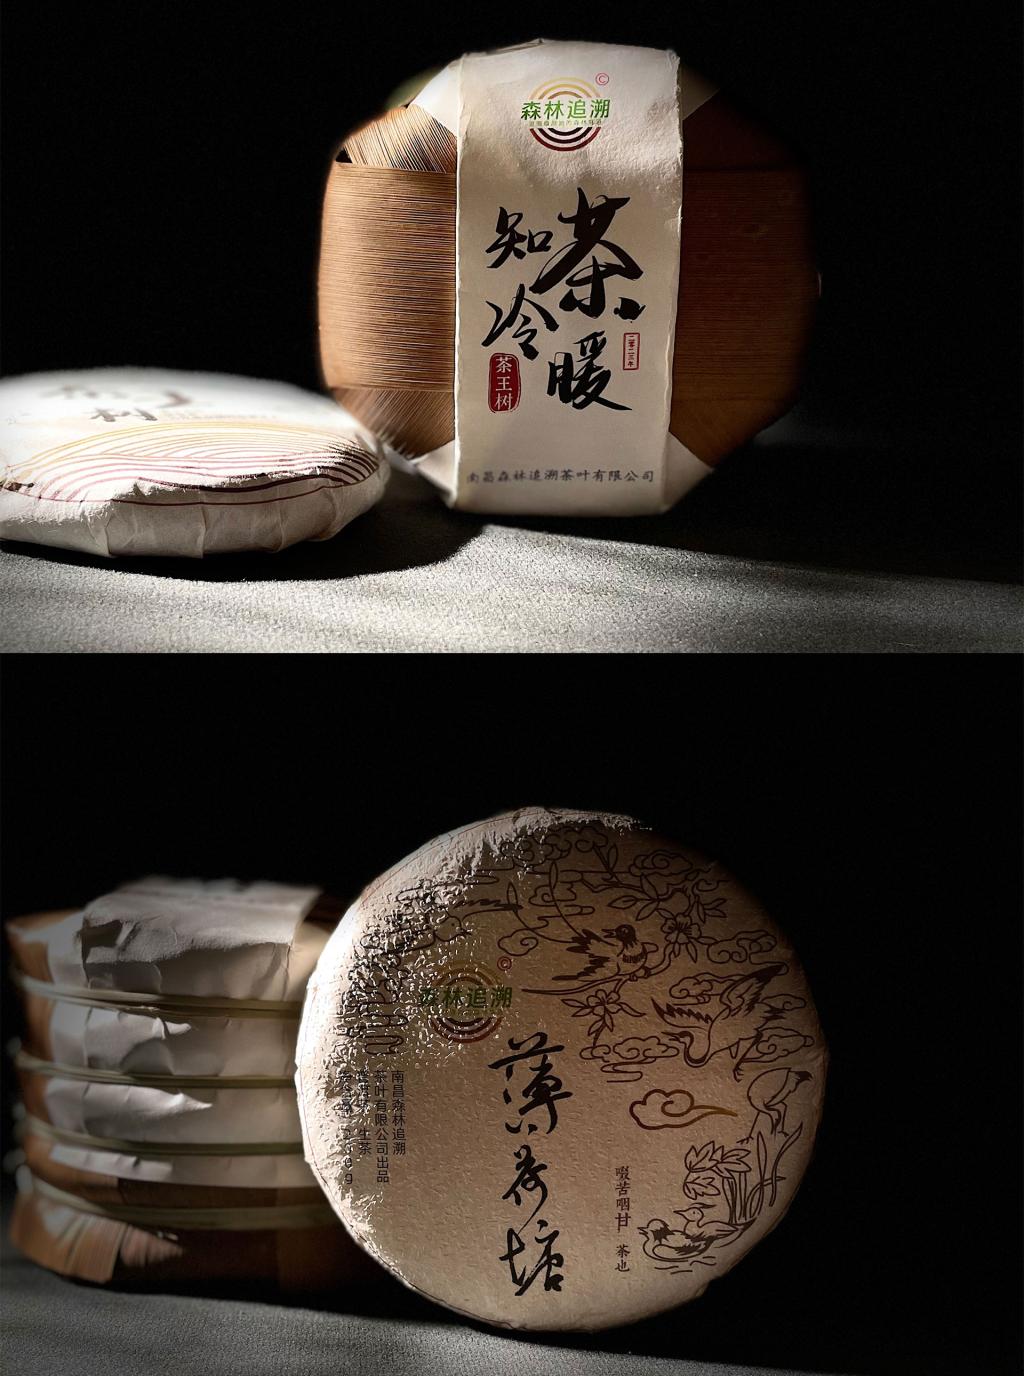 ©
森林追溯
茶暖
知冷
二零二三年
茶王树
南昌森林追溯茶叶有限公司
树
©
森林追溯
薄荷塘
啜苦咽甘 茶也
南昌森林追溯
茶叶有限公司出品
生茶